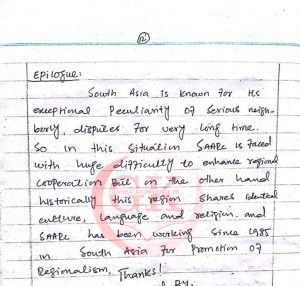 12
Epilogue:
South Asia is known for its
exceptional Peculiarity of serious neigh-
borly disputes for very long time.
So in this situation SAARC is faced
with huge difficultly to enhance regional
cooperation but on the other hand
historically this region shares identical
culture, language and religion. and
SAARC has been working since 1985
in South Asia for Promotion of
Regionalism. Thanks!
By.